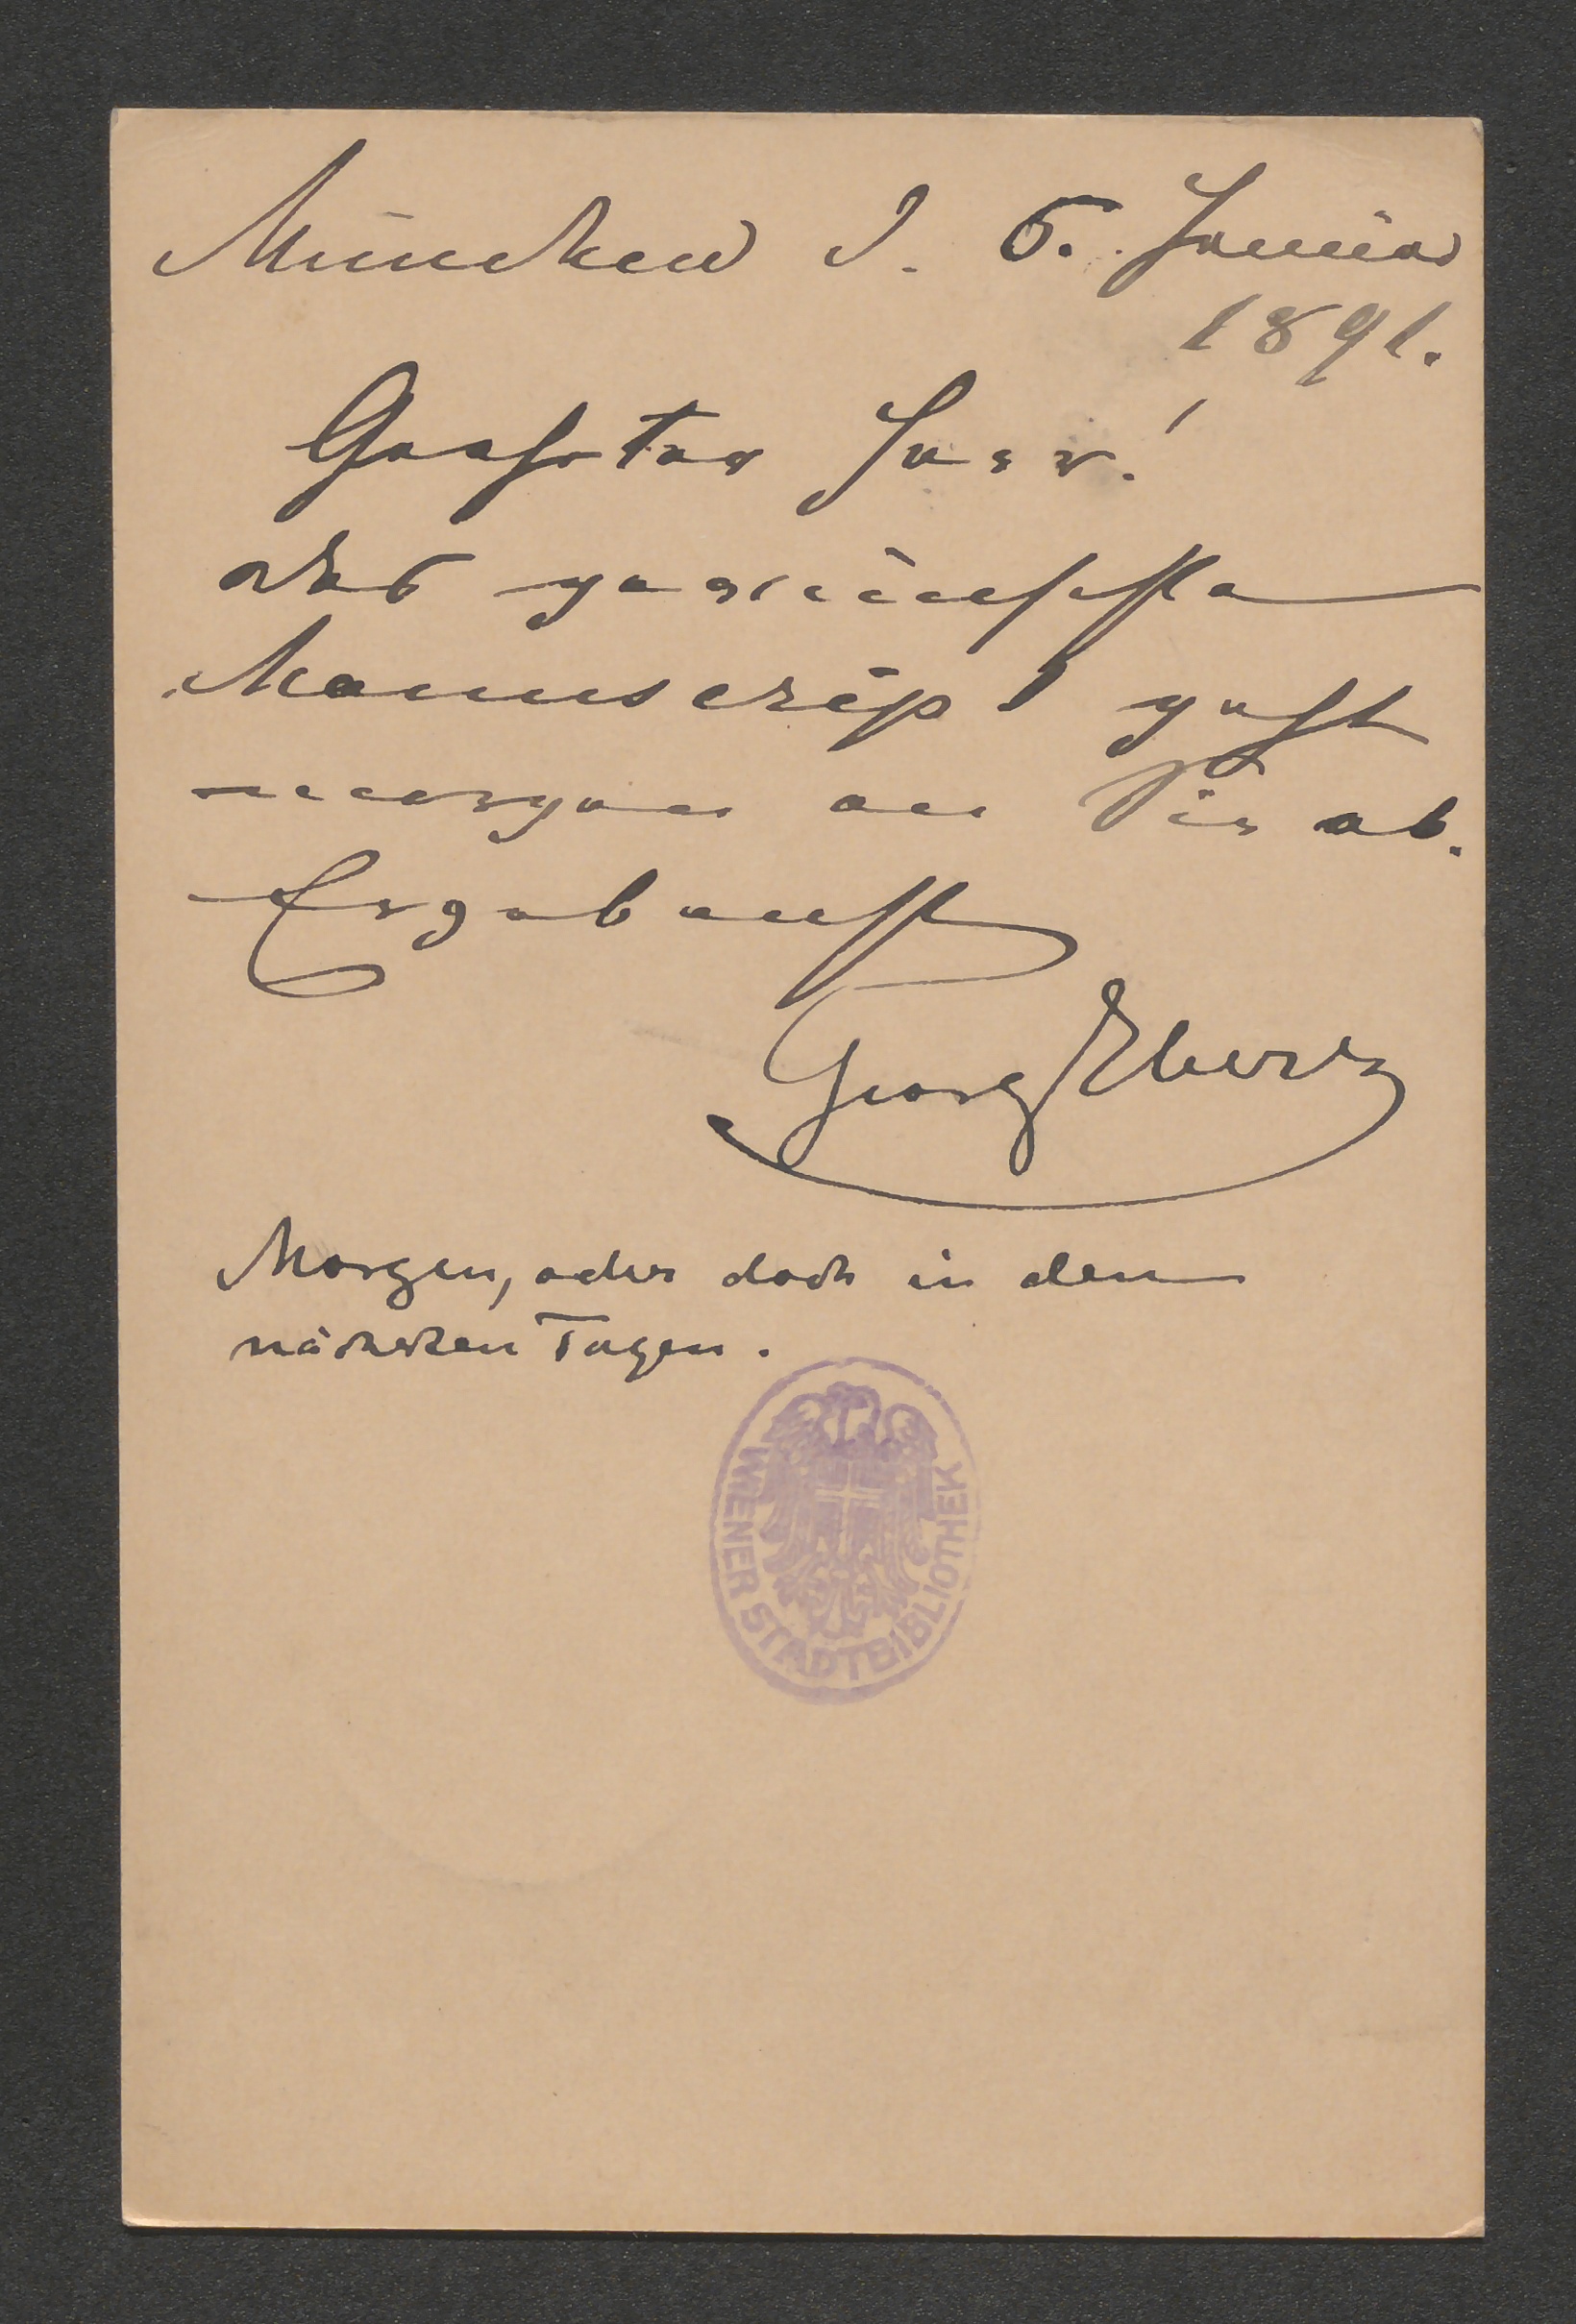 München d. 5. Januar
1891.
Geehrter Herr!
das gewünschte
Manuscript geht
morgen an Sie ab.
Ergebenst
Georg Ebers
Morgen, oder doch in den
nächsten Tagen.
WIENER STADTBIBLIOTHEK